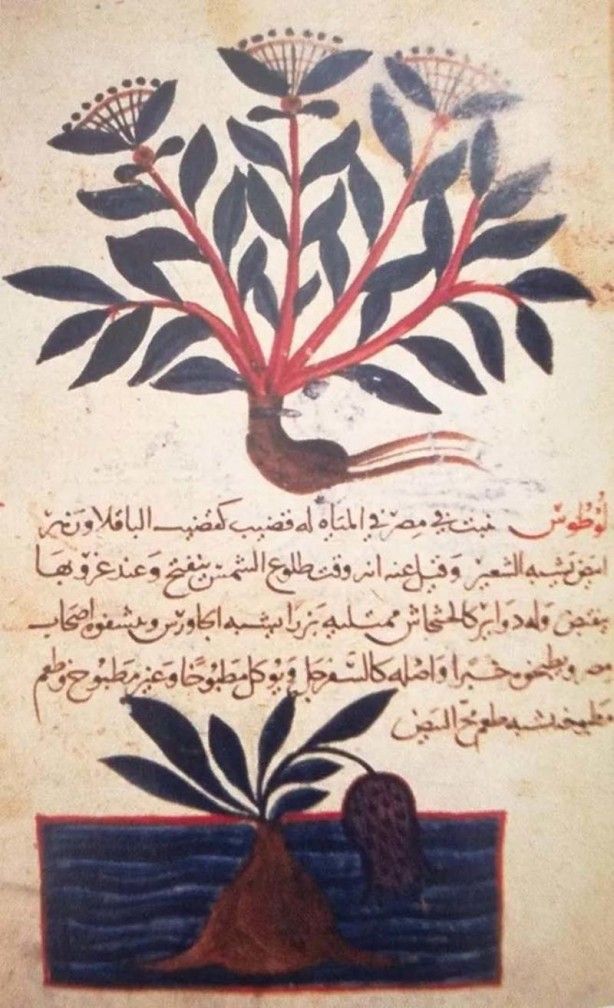 لوطوس ينبت في مصر في المياه له قضيب كقضيب الباقلا وزهر
ابيض يشبه الشعير وقيل عنه انه وقت طلوع الشمس ينفتح وعند غروبها
ينقبض وله دواير كالخشخاش ممتليه بزرا يشبه الجاورس وينشفوه اصحاب
مصر ويطبخوه خبزا واصله كالسفرجل ويوكل مطبوخا وغير مطبوخ وطعم
طبيخه يشبه طعم مح البيض